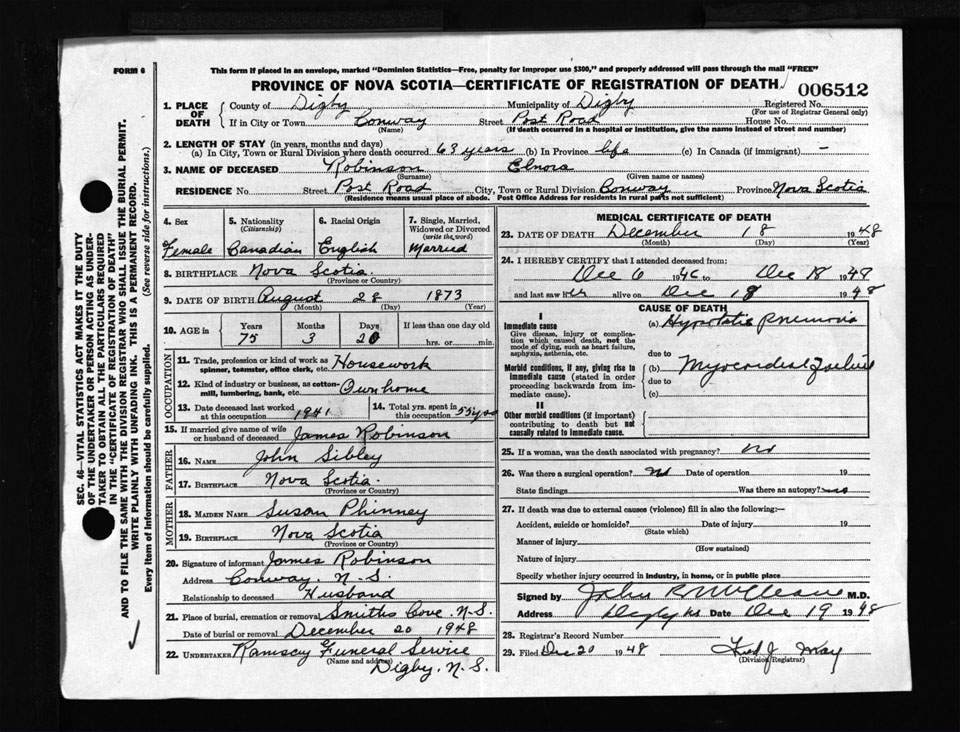 FORM 6
This form if placed in an envelope, marked "Dominion Statistics—Free, penalty for improper use $300," and properly addressed will pass through the mail "FREE"
PROVINCE OF NOVA SCOTIA—CERTIFICATE OF REGISTRATION OF DEATH 006512
1. PLACE OF DEATH { County of Digby Municipality of Digby Registered No.
(For use of Registrar General only)
If in City or Town Conway Street Post Road House No.
(Name) (If death occurred in a hospital or institution, give the name instead of street and number)
2. LENGTH OF STAY (in years, months and days)
(a) In City, Town or Rural Division where death occurred 63 years (b) In Province life (c) In Canada (if immigrant) —
3. NAME OF DECEASED Robinson Elnora
(Surname) (Given name or names)
RESIDENCE No. Street Post Road City, Town or Rural Division Conway Province Nova Scotia
(Residence means usual place of abode. Post Office Address for residents in rural parts not sufficient)
4. Sex 5. Nationality (Citizenship) 6. Racial Origin 7. Single, Married, Widowed or Divorced (write the word)
Female Canadian English Married
8. BIRTHPLACE Nova Scotia
(Province or Country)
9. DATE OF BIRTH August 28 1873
(Month) (Day) (Year)
10. AGE in Years Months Days If less than one day old
75 3 20 hrs. or min.
OCCUPATION
11. Trade, profession or kind of work as spinner, teamster, office clerk, etc. Housework
12. Kind of industry or business, as cotton-mill, lumbering, bank, etc. Own home
13. Date deceased last worked at this occupation 1941 14. Total yrs. spent in this occupation 55 yrs
15. If married give name of wife or husband of deceased James Robinson
FATHER
16. NAME John Sibley
17. BIRTHPLACE Nova Scotia
(Province or Country)
MOTHER
18. MAIDEN NAME Susan Phinney
19. BIRTHPLACE Nova Scotia
(Province or Country)
20. Signature of informant James Robinson
Address Conway, N.S.
Relationship to deceased Husband
21. Place of burial, cremation or removal Smiths Cove, N.S.
Date of burial or removal December 20 1948
22. UNDERTAKER Ramsey Funeral Service
(Name and address) Digby, N.S.
MEDICAL CERTIFICATE OF DEATH
23. DATE OF DEATH December 18 1948
(Month) (Day) (Year)
24. I HEREBY CERTIFY that I attended deceased from:
Dec 6 1946 to Dec 18 1948
and last saw her alive on Dec 18 1948
CAUSE OF DEATH
I
Immediate cause (a) Hypostatic Pneumonia
Give disease, injury or complication which caused death, not the mode of dying, such as heart failure, asphyxia, asthenia, etc.
due to
Morbid conditions, if any, giving rise to immediate cause (stated in order proceeding backwards from immediate cause). (b) Myocardial Failure
due to
(c)
II
Other morbid conditions (if important) contributing to death but not causally related to immediate cause.
25. If a woman, was the death associated with pregnancy? no
26. Was there a surgical operation? no Date of operation 19
State findings Was there an autopsy? no
27. If death was due to external causes (violence) fill in also the following:—
Accident, suicide or homicide? Date of injury 19
(State which)
Manner of injury
(How sustained)
Nature of injury
Specify whether injury occurred in industry, in home, or in public place
Signed by John R M. D.
Address Digby NS Date Dec 19 1948
28. Registrar's Record Number
29. Filed Dec 20 1948 Fred J. May
(Division Registrar)
SEC. 46—VITAL STATISTICS ACT MAKES IT THE DUTY
OF THE UNDERTAKER OR PERSON ACTING AS UNDER-
TAKER TO OBTAIN ALL THE PARTICULARS REQUIRED
IN THE "CERTIFICATE OF REGISTRATION OF DEATH"
AND TO FILE THE SAME WITH THE DIVISION REGISTRAR WHO SHALL ISSUE THE BURIAL PERMIT.
WRITE PLAINLY WITH UNFADING INK. THIS IS A PERMANENT RECORD.
Every item of information should be carefully supplied. (See reverse side for instructions.)